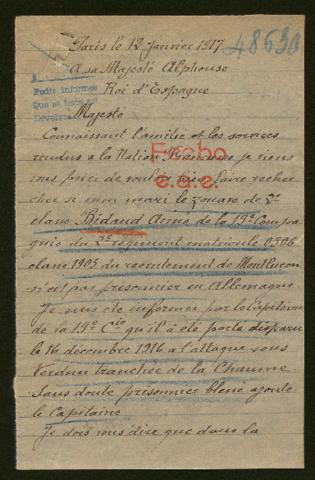 Paris le 12 Janvier 1917
48630
A sa Majesté Alphonse
Roi d'Espagne
Pedir informes
Que se hace lo
Majesté
Connaissant l'amitie et les services
rendus a la Nation Francaise je viens
vous prier de vouloir bien faire recher
Hecho
e.a.e.
cher si mon mari le zouave de 2e
classe Bidaud Aimé de la 19e Compa
gnie du 2e regiment matricule 0396
classe 1905 du recrutement de Montluçon
n'est pas prisonnier en Allemagne
Je suis eté informée par le Capitaine
de la 19e Cie qu'il a été porté disparu
le 16 décembre 1916 a l'attaque sous
Verdun tranchée de la Chaume
Sans doute prisonnier blessé ajoute
le Capitaine
Je dois vous dire que dans la